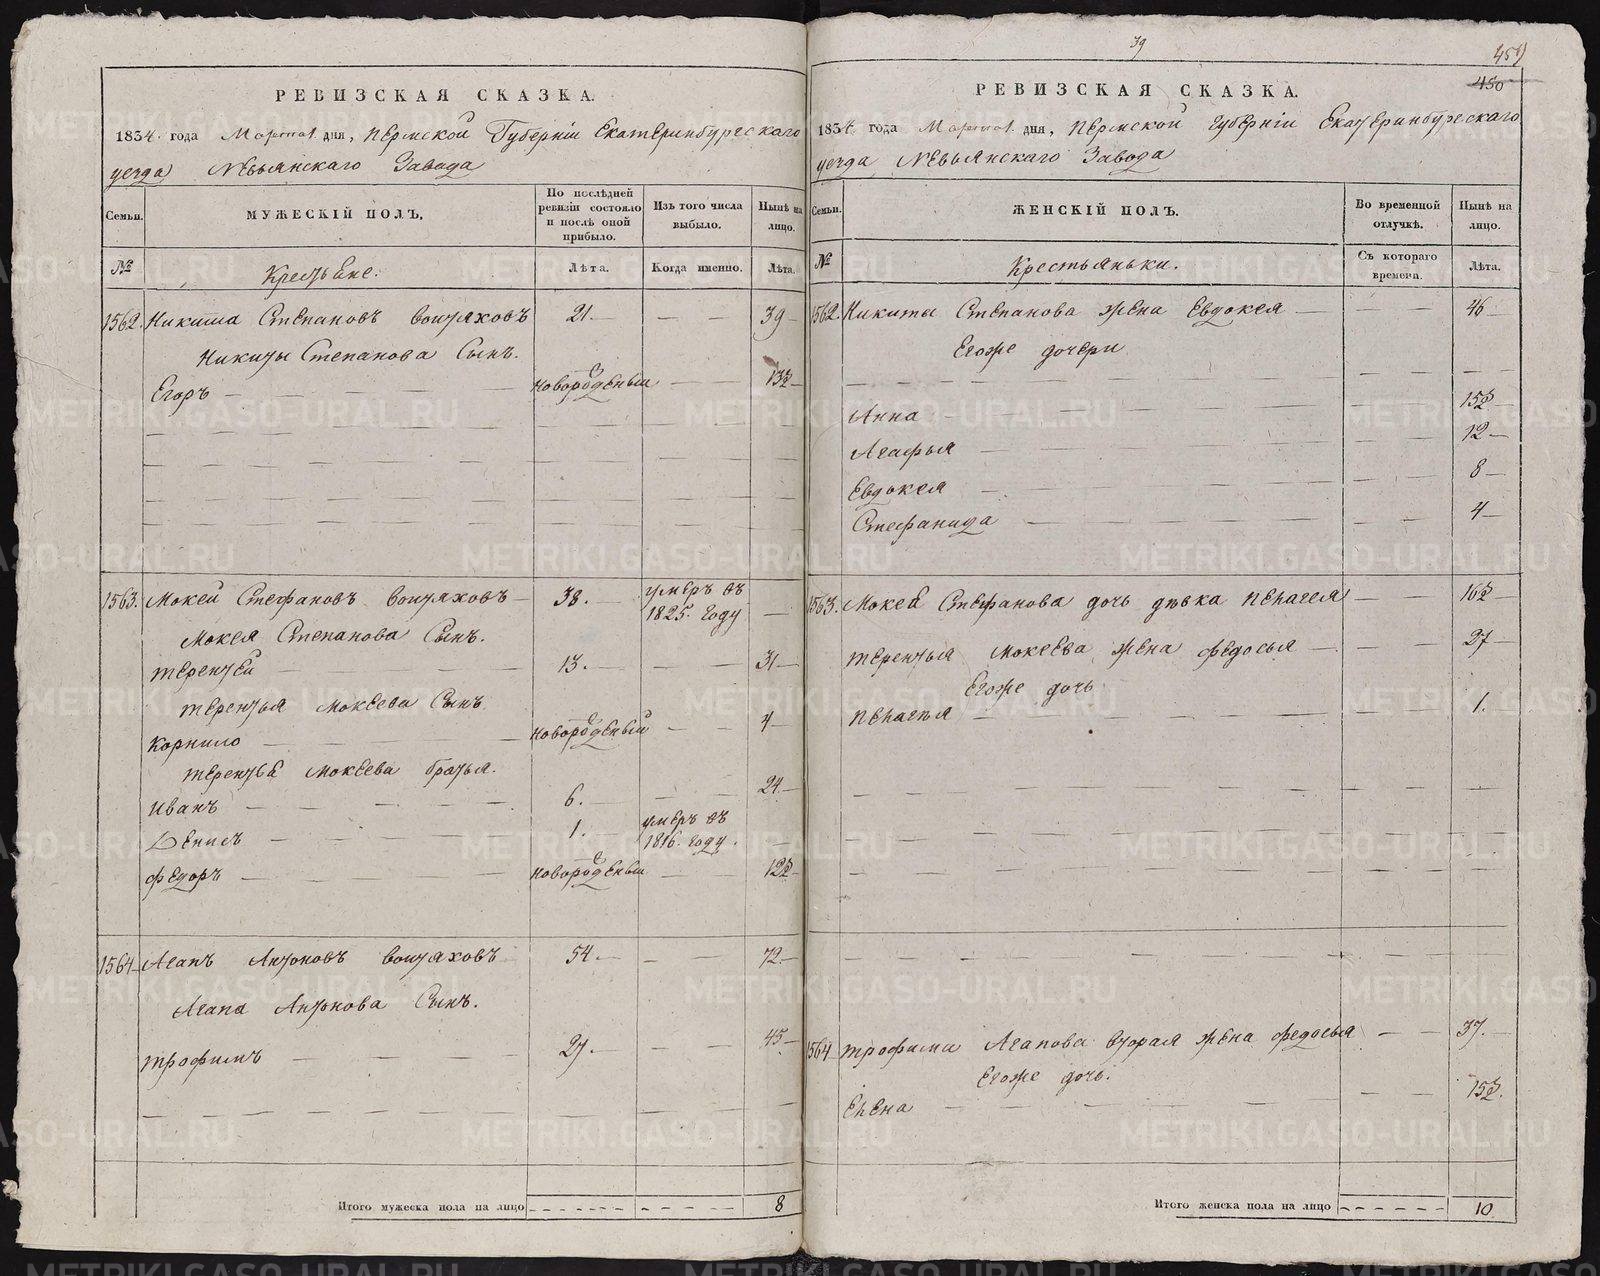 39
459
450
РЕВИЗСКАЯ СКАЗКА.
1834. года Марта дня, Пермской Губерніи Екатеринбургскаго
уезда Невьянскаго Завода
Семьи.
МУЖЕСКІЙ ПОЛЪ.
По послѣдней ревизіи состояло и послѣ оной прибыло.
Изъ того числа выбыло.
Нынѣ на лицо.
№
Крестьяне.
Лѣта.
Когда именно.
Лѣта.
1562. Никита Степановъ вотяховъ 21. — — 39
Никиты Степанова Сынъ.
Егоръ новорожденный 13½
1563. Мокей Стефановъ вотяховъ 38. умеръ въ 1825. году
Мокея Степанова Сынъ.
терентей 13. 31
терентья мокеева Сынъ
корнило новорожденный 4
терентья мокеева братья.
иванъ 6. 24
Денисъ 1. умеръ въ 1816. году.
федоръ новорожденный 12½
1564 Агапъ Антоновъ вотяховъ 54. 72
Агапа Антонова Сынъ.
трофимъ 27. 45
Итого мужеска пола на лицо 8
РЕВИЗСКАЯ СКАЗКА.
1834. года Марта дня, Пермской губерніи Екатеринбургскаго
уезда Невьянскаго Завода
Семьи.
ЖЕНСКІЙ ПОЛЪ.
Во временной отлучкѣ.
Нынѣ на лицо.
№
Крестьяньки.
Съ котораго времени.
Лѣта.
1562. Никиты Степанова жена Евдокея 46
Егоже дочери
Анна 15½
Агафья 12
Евдокея 8
Стефанида 4
1563. Мокея Стефанова дочь дѣвка пелагея 16½
терентья мокеева жена федосья 27
Егоже дочь
пелагея 1.
1564 трофима Агапова вторая жена федосья 37.
Егоже дочь.
Елена 15½.
Итого женска пола на лицо 10
METRIKI.GASO-URAL.RU